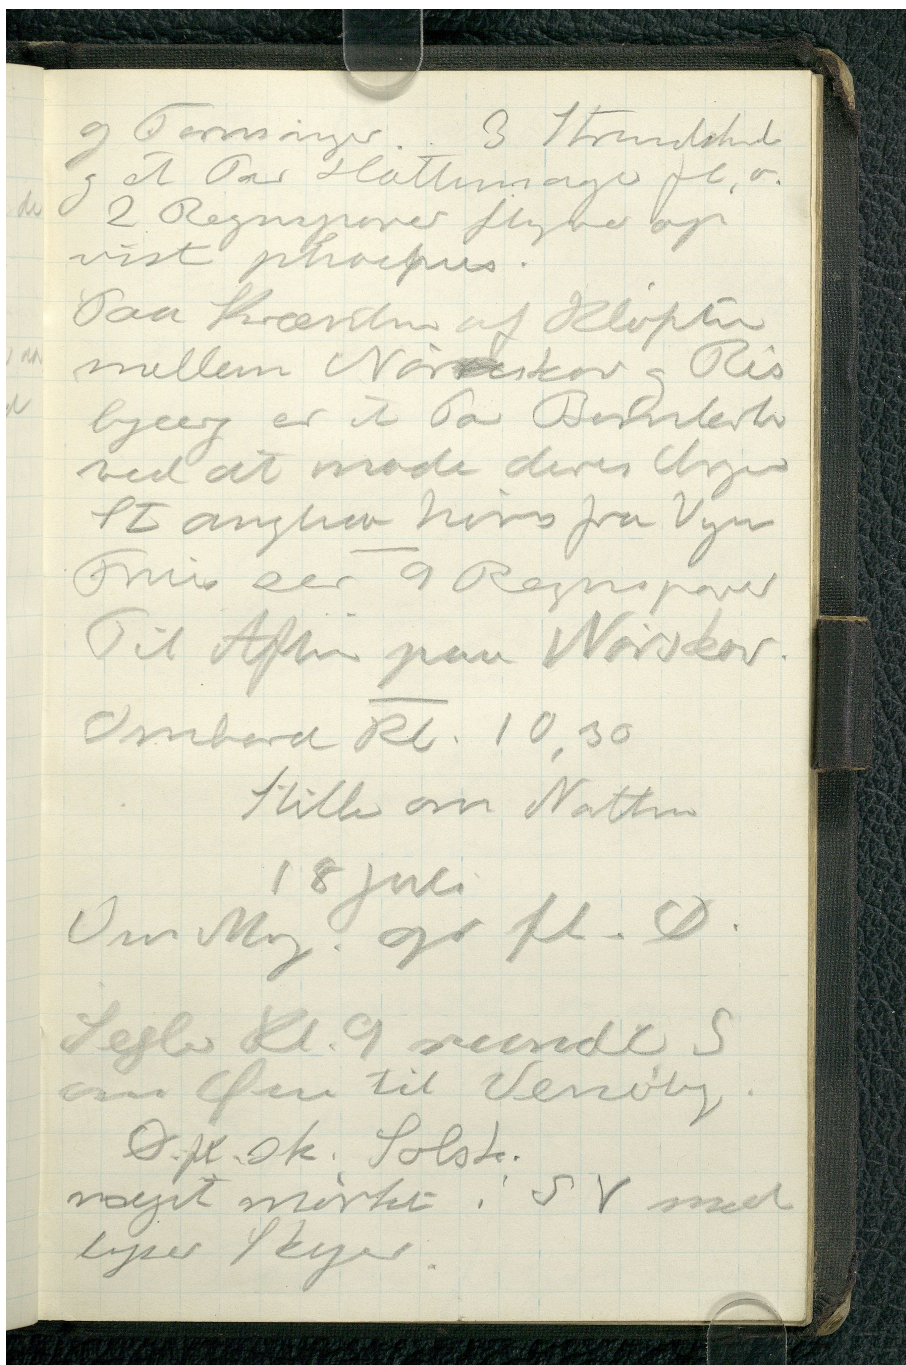 og Tornsanger. . 3 Strandskad
og et Par Hættemaager fl. o.
2 Regnspover flyver op
vist phaeopus.
Paa Skrænten af Kløften
mellem Nørreskov og Ris
bjerg er et Par Bomlærke
ved at made deres Unger
St anglica høres fra Vejen
Friis ser 9 Regnspover
Til Aften paa Nørskov.
Ombord Kl. 10,30
Stille om Natten
18 Juli
Om Morg. og fl. Ø.
Sejler Kl. 9 rundt S
om Øen til Venøby.
Ø. fl. sk. Solsk.
meget mørkt i SV med
lyse Skyer.